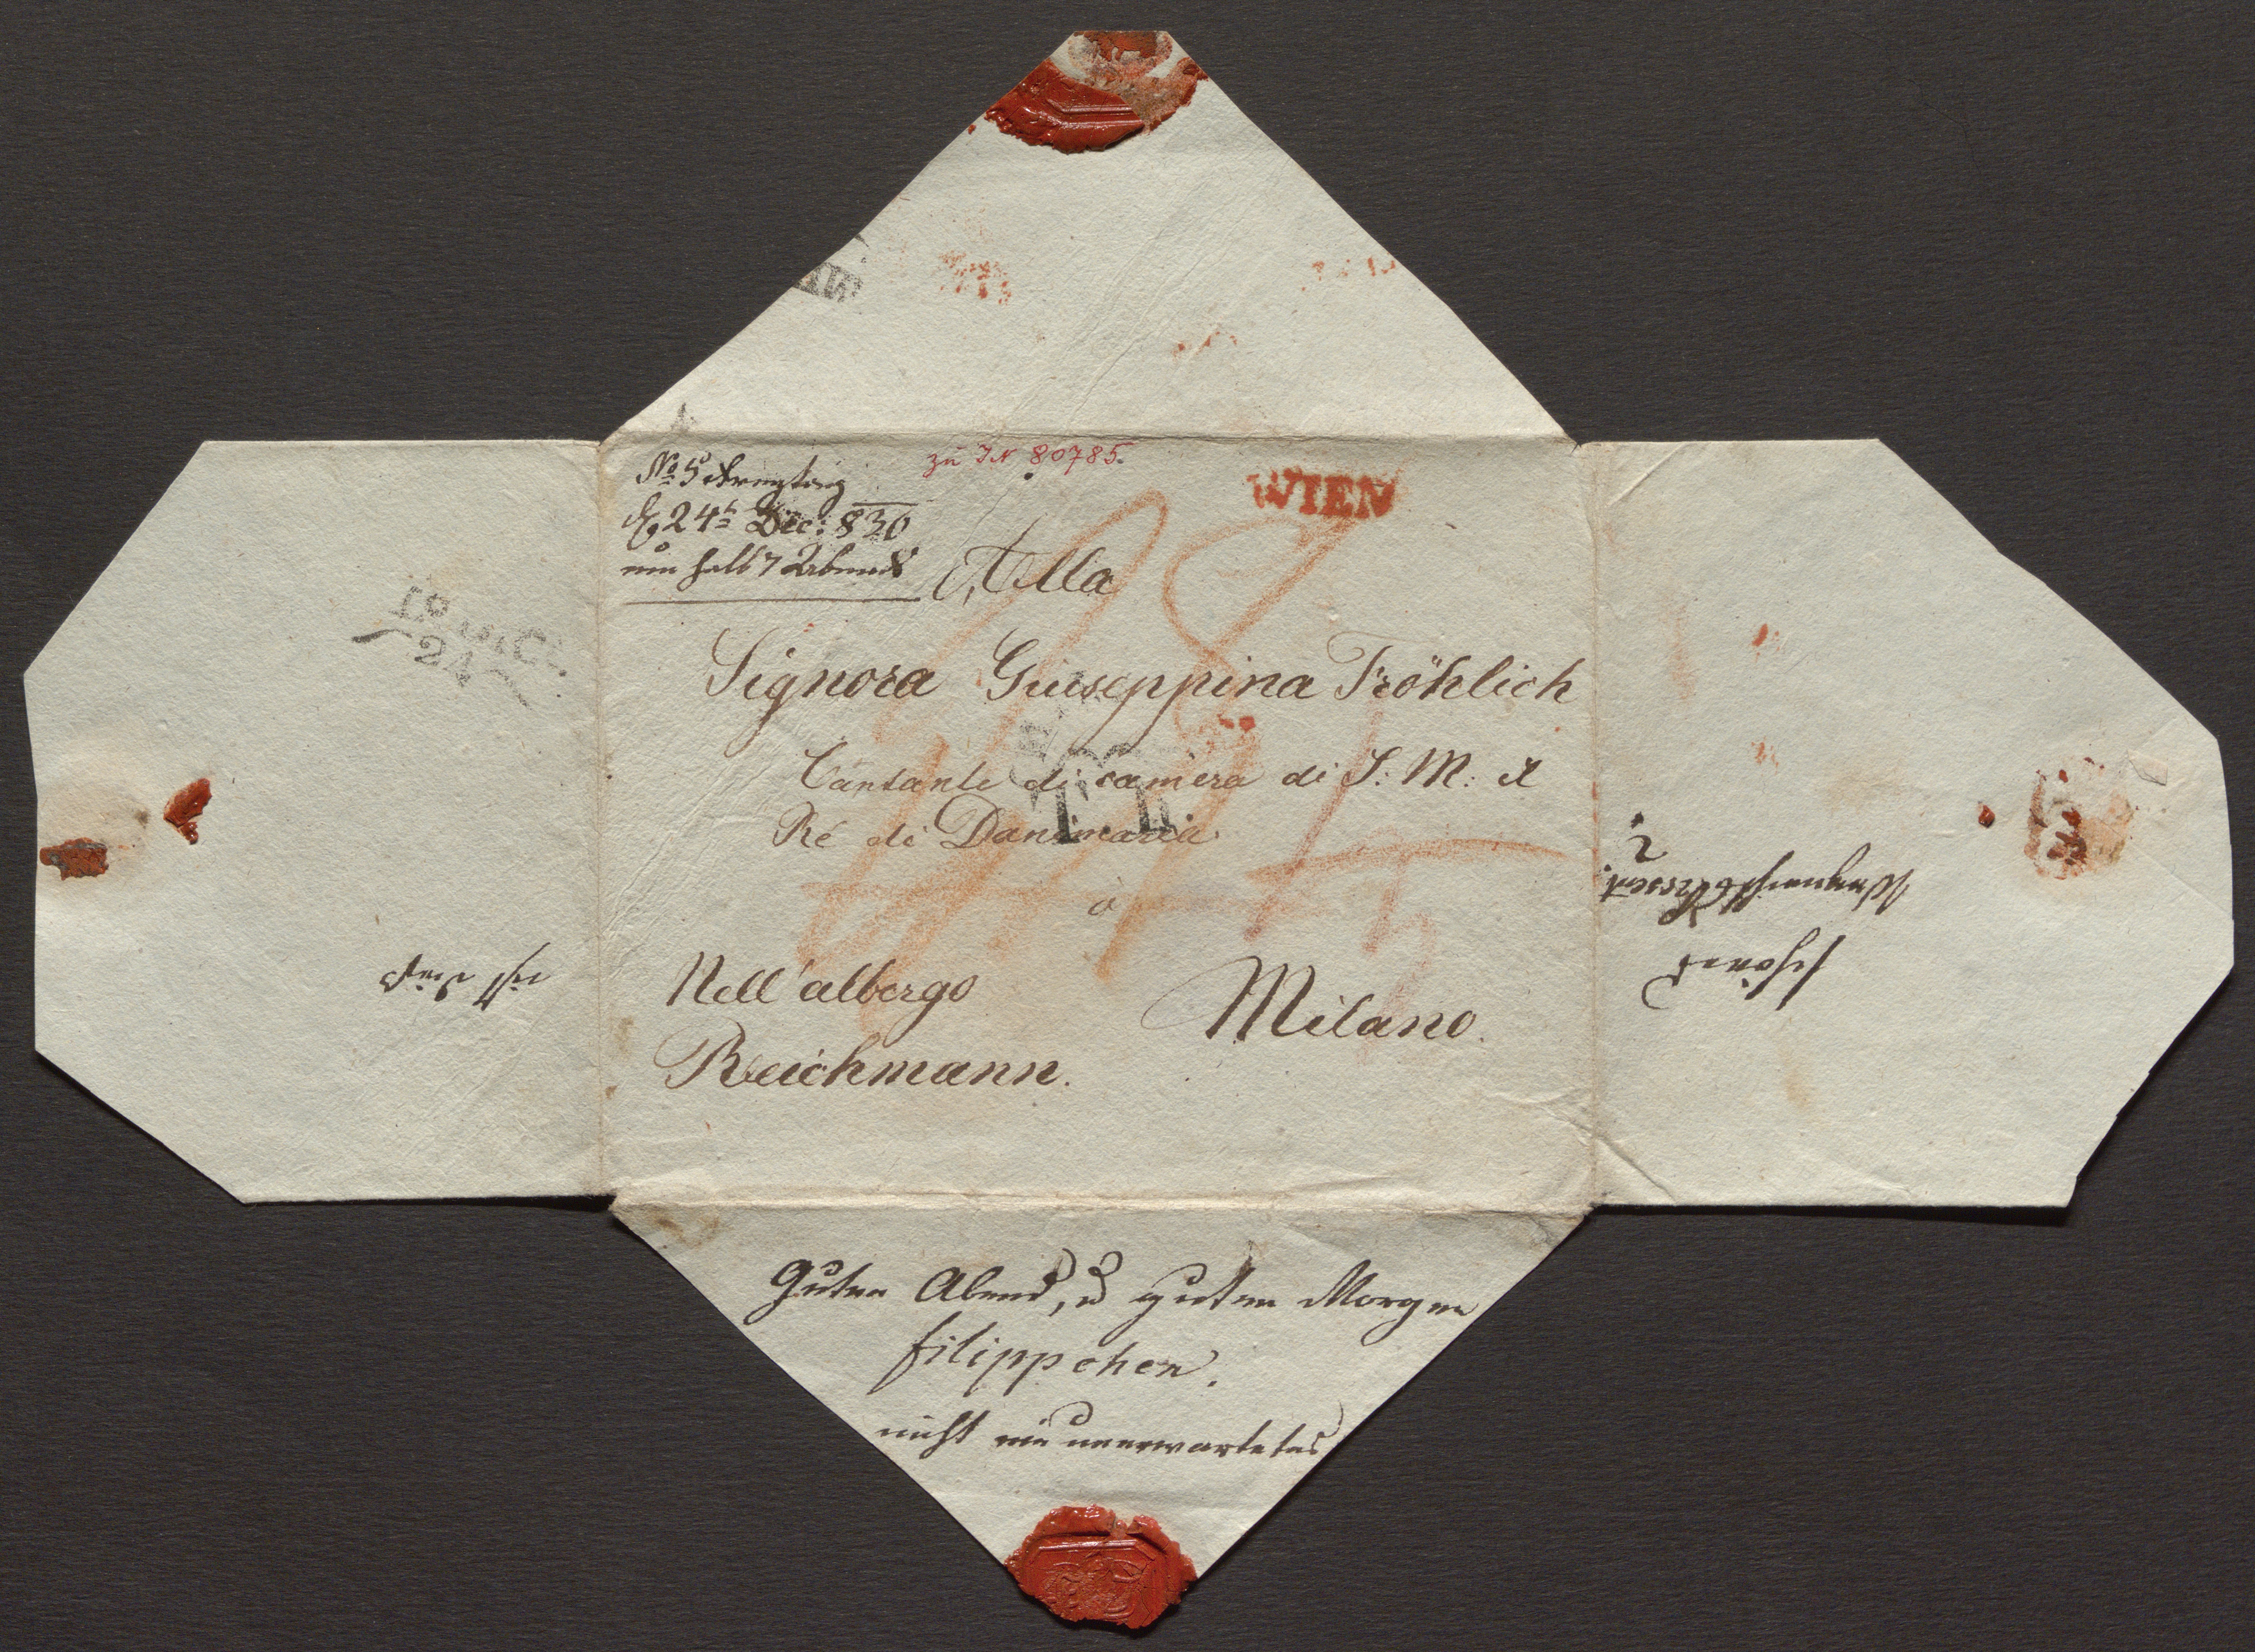 No 5 Freytag
d. 24t Dec: 830
um halb 7 Abends
zu IN 80785.
WIEN
Alla
Signora Giuseppina Fröhlich
Cantante di camera di S: M: il
Ré di Danimarca
à
Nell'albergo
Milano.
Reichmann.
Guten Abend, u guten Morgen
filippchen.
nicht ein unerwartetes
schönes
ist das